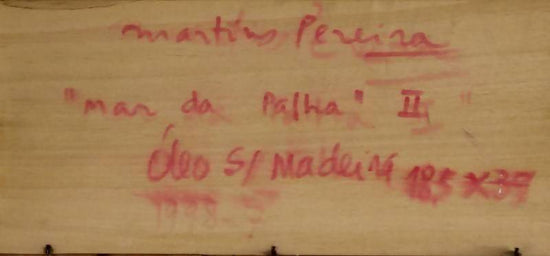 martins Pereira
"mar da Palha" II
Óleo S/ Madeira 18,5 x 37